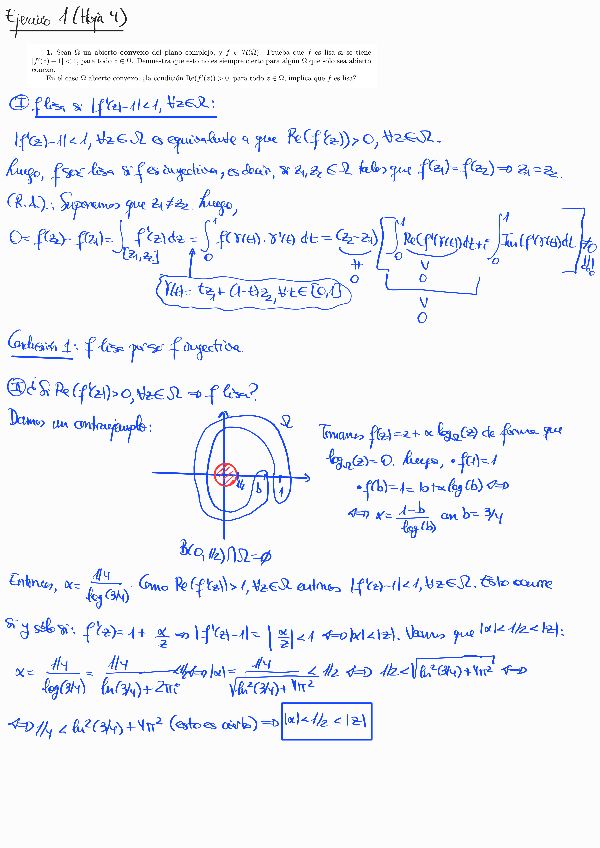 Ejercicio 1 (Hoja 4)
1. Sean Ω un abierto convexo del plano complejo, y f ∈ H(Ω). Prueba que f es lisa si se tiene
|f'(z) − 1| < 1, para todo z ∈ Ω. Demuestra que esto no es siempre cierto para algún Ω que sólo sea abierto
conexo.
En el caso Ω abierto convexo, ¿la condición Re(f'(z)) > 0, para todo z ∈ Ω, implica que f es lisa?
I f lisa si |f'(z)-1|<1, ∀z∈Ω:
|f'(z)-1|<1, ∀z∈Ω es equivalente a que Re(f'(z))>0, ∀z∈Ω.
Luego, f será lisa si f es inyectiva, es decir, si z₁,z₂ ∈ Ω tales que f(z₁)=f(z₂) ⇒ z₁=z₂.
(R.A.): Supongamos que z₁≠z₂. Luego,
0=f(z₂)-f(z₁)=∫[z₁,z₂] f'(z)dz = ∫₀¹ f'(γ(t))·γ'(t) dt = (z₂-z₁) [∫₀¹ Re(f'(γ(t)))dt + i ∫₀¹ Im(f'(γ(t)))dt] ≠0 !!!
γ(t)= tz₁+(1-t)z₂, ∀t∈[0,1]
Conclusión 1: f lisa pues f inyectiva.
II ¿Si Re(f'(z))>0, ∀z∈Ω ⇒ f lisa?
Damos un contraejemplo:
Ω
1/2 b 1
B(0,1/2)∩Ω=∅
Tomamos f(z)=z+α log_Ω(z) de forma que
log_Ω(z)=0. Luego, • f(1)=1
• f(b)=1=b+α log(b) ⇔
⇔ α= (1-b)/log(b) con b=3/4
Entonces, α= (1/4)/log(3/4). Como Re(f'(z))>1, ∀z∈Ω entonces |f'(z)-1|<1, ∀z∈Ω. Esto ocurre
si y sólo si: f'(z)=1+ α/z ⇒ |f'(z)-1|= |α/z| <1 ⇔ |α|<|z|. Veamos que |α|<1/2<|z|:
α= (1/4)/log(3/4) = (1/4)/(ln(3/4)+2πi) ⇔ |α|= (1/4)/√(ln²(3/4)+4π²) < 1/2 ⇔ 1/2<√(ln²(3/4)+4π²) ⇔
⇔ 1/4 < ln²(3/4)+4π² (esto es cierto) ⇒ |α|<1/2<|z|